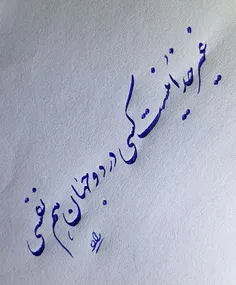 غیر خدا نیست کسی در دو جهان هم نفسی